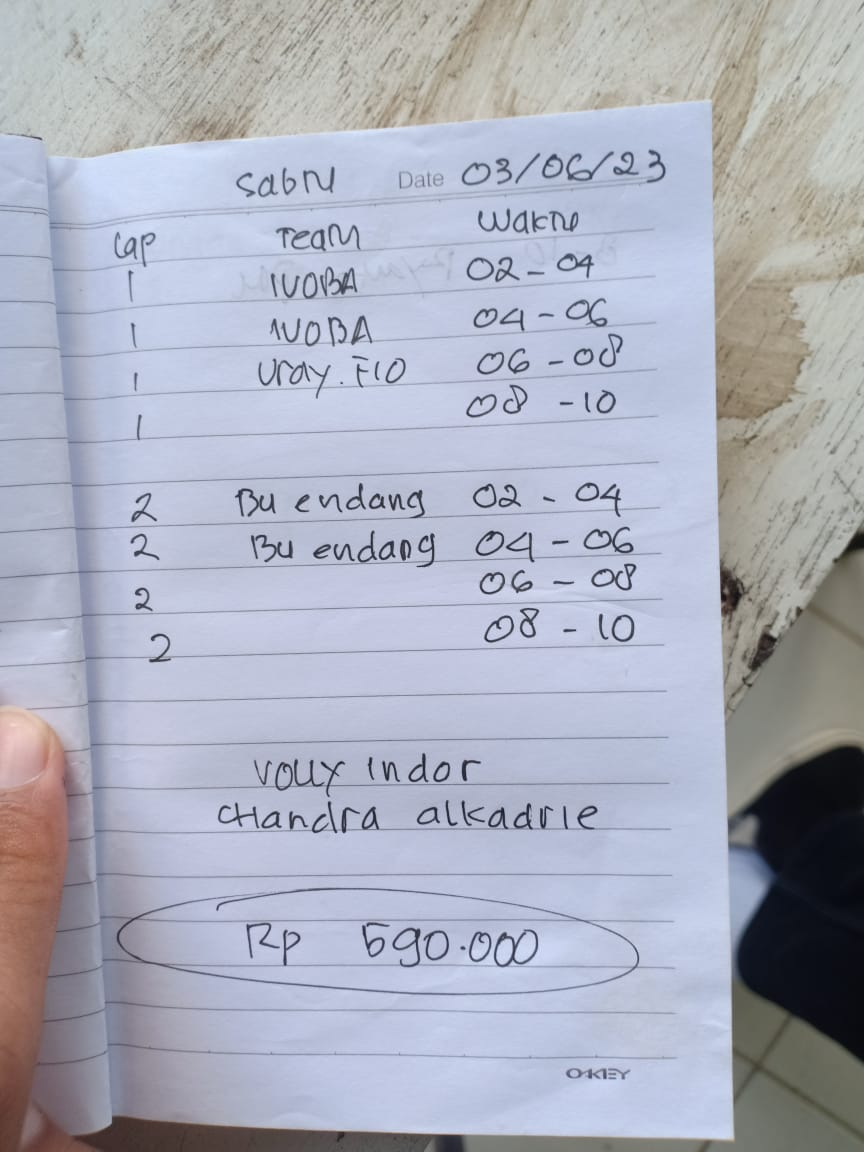 Sabtu Date 03/06/23
Lap Team Waktu
1 IVOBA 02-04
1 IVOBA 04-06
1 Uray.Fio 06-08
1 08-10
2 Bu endang 02-04
2 Bu endang 04-06
2 06-08
2 08-10
volly indor
CHandra alkadrie
Rp 590.000
OKEY